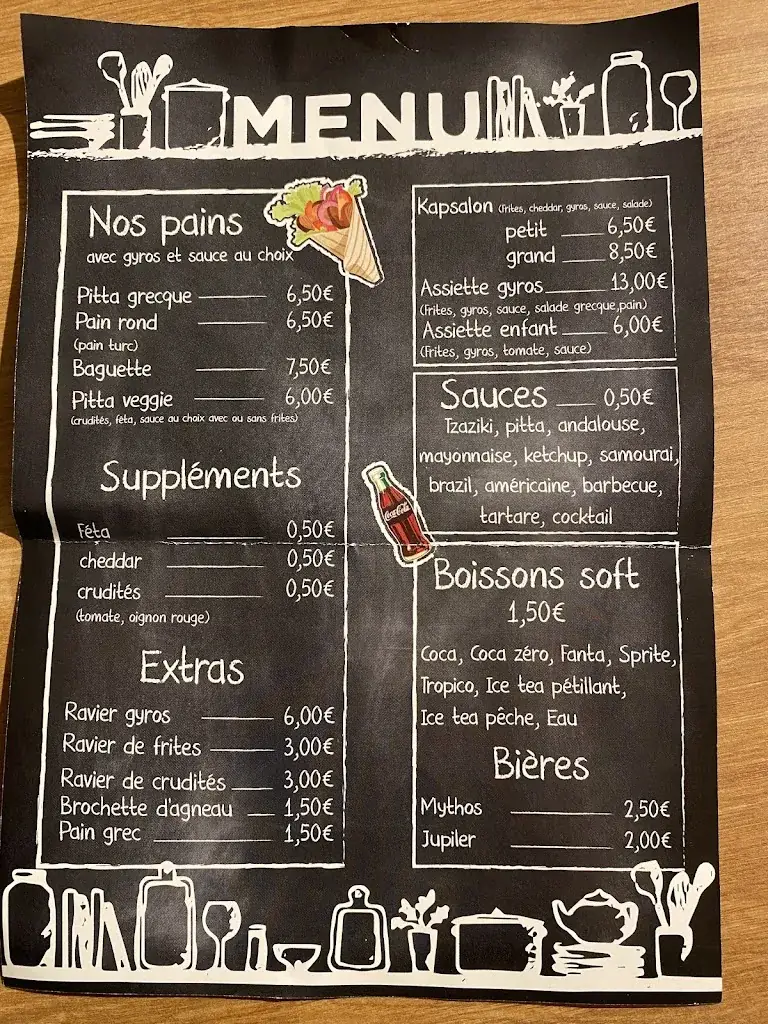 MENU
Nos pains
avec gyros et sauce au choix
Pitta grecque 6,50€
Pain rond 6,50€
(pain turc)
Baguette 7,50€
Pitta veggie 6,00€
(crudités, féta, sauce au choix avec ou sans frites)
Suppléments
Féta 0,50€
cheddar 0,50€
crudités 0,50€
(tomate, oignon rouge)
Extras
Ravier gyros 6,00€
Ravier de frites 3,00€
Ravier de crudités 3,00€
Brochette d'agneau 1,50€
Pain grec 1,50€
Kapsalon (frites, cheddar, gyros, sauce, salade)
petit 6,50€
grand 8,50€
Assiette gyros 13,00€
(frites, gyros, sauce, salade grecque,pain)
Assiette enfant 6,00€
(frites, gyros, tomate, sauce)
Sauces 0,50€
Tzaziki, pitta, andalouse,
mayonnaise, ketchup, samourai,
brazil, américaine, barbecue,
tartare, cocktail
Coca-Cola
Boissons soft
1,50€
Coca, Coca zéro, Fanta, Sprite,
Tropico, Ice tea pétillant,
Ice tea pêche, Eau
Bières
Mythos 2,50€
Jupiler 2,00€